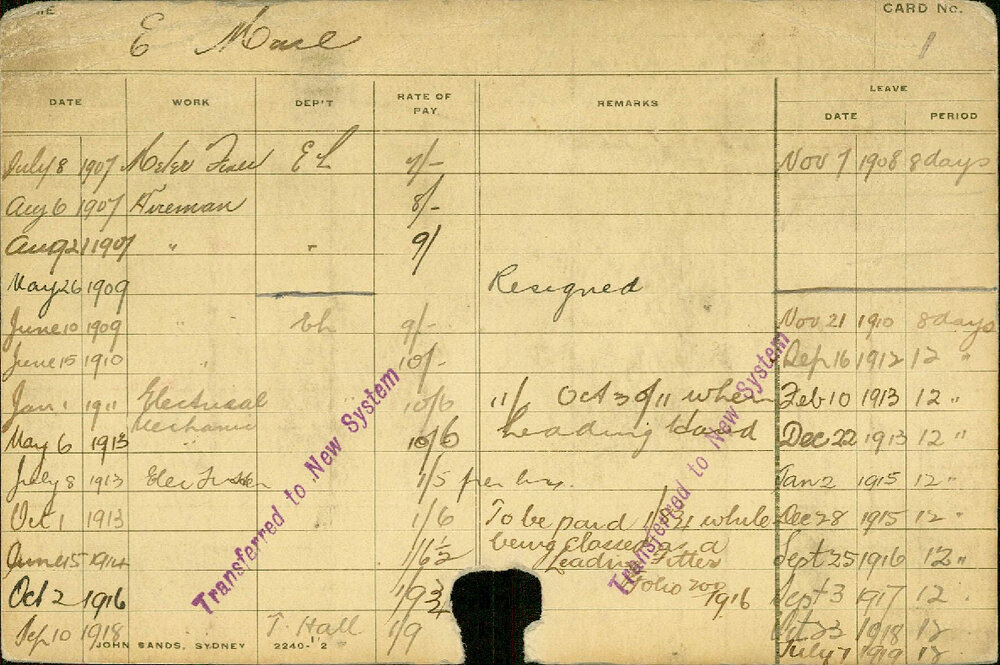 CARD No.
E 1
DATE WORK DEP'T RATE OF PAY REMARKS LEAVE
DATE PERIOD
July 8 1907 Meter E L 7/- Nov 7 1908 8 days
Aug 6 1907 Fireman 8/-
Aug 21 1907 " " 9/
May 26 1909 Resigned
June 10 1909 " 9/- Nov 21 1910 8 days
June 15 1910 " 10/- Sep 16 1912 12 "
Jan 1 1911 Electrical 10/6 11/6 Oct 30/11 when Feb 10 1913 12 "
Mechanic
May 6 1913 10/6 Leading Hand Dec 22 1913 12 "
July 8 1913 Elec 1/5 per hr. Jan 2 1915 12 "
Oct 1 1913 1/6 To be paid while Dec 28 1915 12 "
June 15 1914 1/6½ being classed as a Sept 25 1916 12 "
Leading Fitter
Oct 2 1916 1/9¾ Folio 1916 Sept 3 1917 12 "
Sep 10 1918 T. Hall 1/9 Oct 23 1918 12
July 7 1919 12
JOHN SANDS, SYDNEY 2240-½
Transferred to New System
Transferred to New System